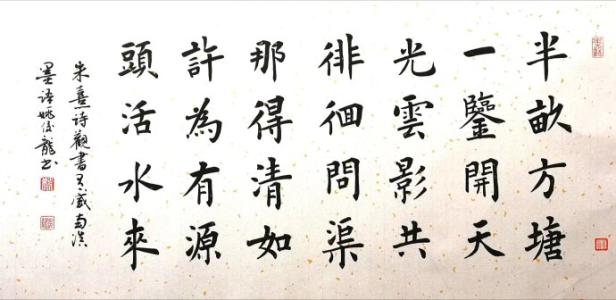 半畝方塘
一鑒開天
光雲影共
徘徊問渠
那得清如
許為有源
頭活水來
朱熹詩觀書有感南
墨語姚俊龍書